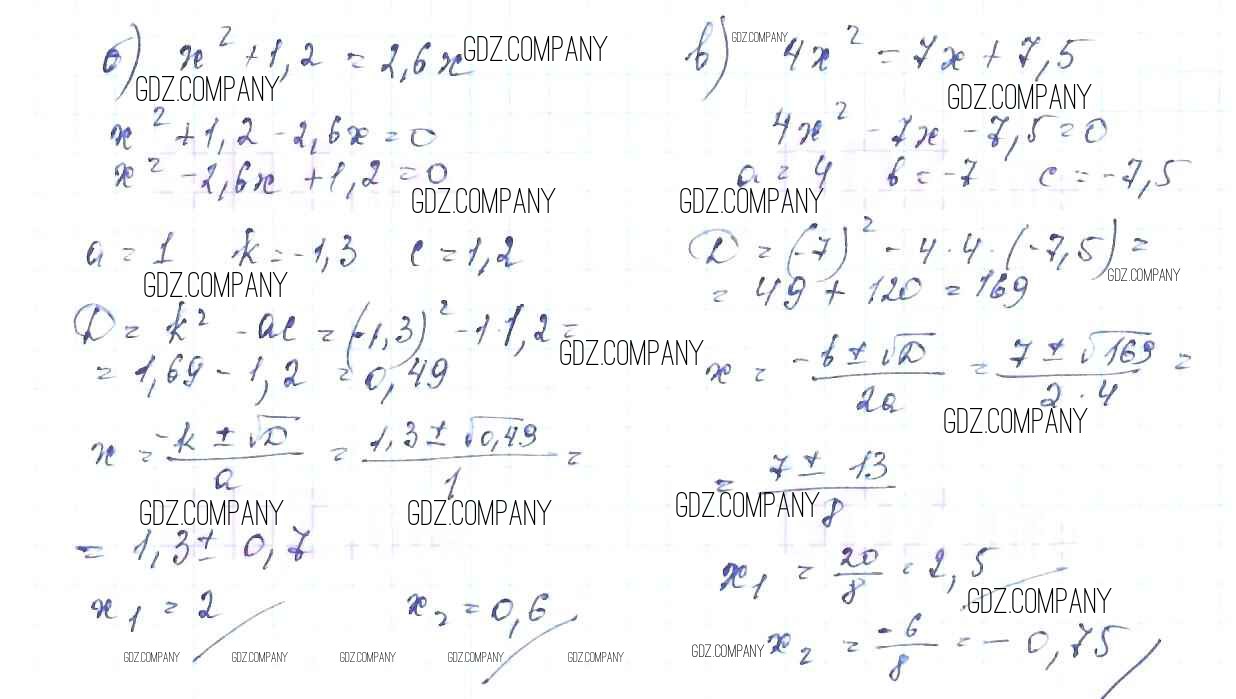 б) x² + 1,2 = 2,6x
GDZ.COMPANY
GDZ.COMPANY
x² + 1,2 - 2,6x = 0
x² - 2,6x + 1,2 = 0
GDZ.COMPANY
a = 1 k = -1,3 c = 1,2
GDZ.COMPANY
D = k² - ac = (-1,3)² - 1·1,2 =
= 1,69 - 1,2 = 0,49
GDZ.COMPANY
x = (-k ± √D)/a = (1,3 ± √0,49)/1 =
GDZ.COMPANY
GDZ.COMPANY
= 1,3 ± 0,7
x₁ = 2 x₂ = 0,6
GDZ.COMPANY GDZ.COMPANY GDZ.COMPANY GDZ.COMPANY GDZ.COMPANY
в) 4x² = 7x + 7,5
GDZ.COMPANY
GDZ.COMPANY
4x² - 7x - 7,5 = 0
a = 4 b = -7 c = -7,5
GDZ.COMPANY
D = (-7)² - 4·4·(-7,5) =
GDZ.COMPANY
= 49 + 120 = 169
x = (-b ± √D)/2a = (7 ± √169)/2·4 =
GDZ.COMPANY
= (7 ± 13)/8
GDZ.COMPANY
x₁ = 20/8 = 2,5
GDZ.COMPANY
x₂ = -6/8 = -0,75
GDZ.COMPANY